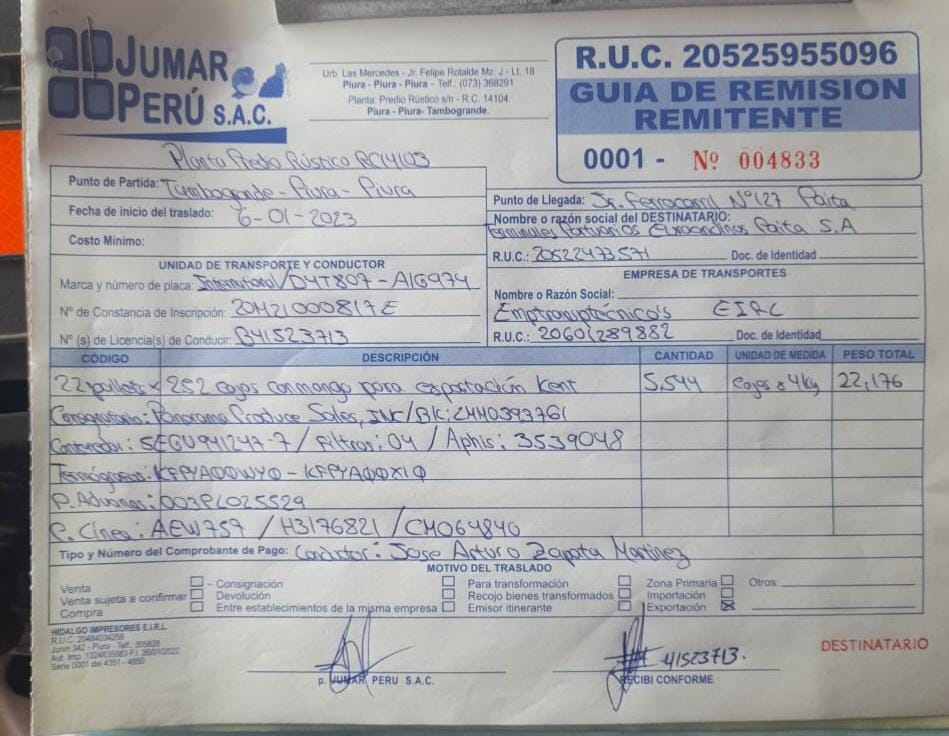 JUMAR
PERÚ S.A.C.
Urb. Las Mercedes - Jr. Felipe Rotalde Mz. J - Lt. 18
Piura - Piura - Piura - Telf.: (073) 368291
Planta: Predio Rústico s/n - R.C. 14104
Piura - Piura- Tambogrande.
R.U.C. 20525955096
GUIA DE REMISION
REMITENTE
0001 - Nº 004833
Planta Predio Rústico RC14103
Punto de Partida: Tambogrande - Piura - Piura
Fecha de inicio del traslado: 6-01-2023
Costo Mínimo:
Punto de Llegada: Jr. Ferrocarril Nº127 Paita
Nombre o razón social del DESTINATARIO:
Terminales Portuarios Euroandinos Paita S.A
R.U.C.: 20522473571 Doc. de Identidad
UNIDAD DE TRANSPORTE Y CONDUCTOR
Marca y número de placa: International/D4T807-A1G974
Nº de Constancia de Inscripción: 20M21000817E
Nº (s) de Licencia(s) de Conducir: B41523713
EMPRESA DE TRANSPORTES
Nombre o Razón Social:
EIRL
R.U.C.: 20601289882 Doc. de Identidad
CÓDIGO DESCRIPCIÓN CANTIDAD UNIDAD DE MEDIDA PESO TOTAL
22 pallets x 252 cajas con mango para exportación Kent 5,544 cajas x 4kg 22,176
Consignatario: Panorama Produce Sales, INC/BK: LMM0393761
Contenedor: SEGU 941247-7 / Filtros: 04 / Aphis: 3539048
Termógrafos: KFPYA00WY0 - KFPYA00X10
P. Aduanas: 003PL025529
P. Línea: AEW759 / H3176821 / CM064840
Tipo y Número del Comprobante de Pago: Conductor: Jose Arturo Zapata Martinez
MOTIVO DEL TRASLADO
Venta
Venta sujeta a confirmar
Compra
- Consignación
Devolución
Entre establecimientos de la misma empresa
Para transformación
Recojo bienes transformados
Emisor itinerante
Zona Primaria
Importación
Exportación
Otros:
HIDALGO IMPRESORES E.I.R.L.
R.U.C. 20484034258
Junin 342 - Piura - Telf.: 305828
Serie 0001 del 4351 - 4850
p. JUMAR PERU S.A.C.
41523713.
RECIBI CONFORME
DESTINATARIO